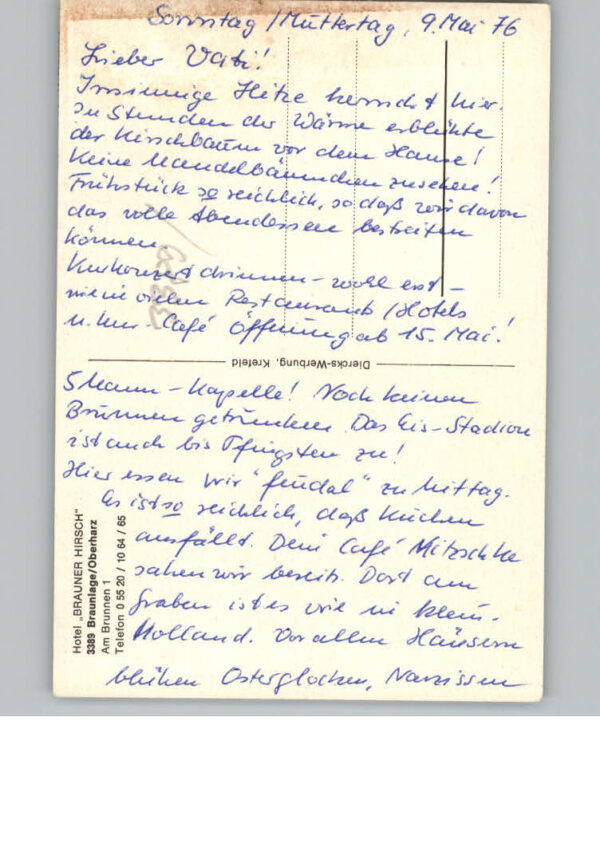 Sonntag / Muttertag, 9. Mai 76
Lieber Vati!
Irrsinnige Hitze herrscht hier.
In Stunden der Wärme erblühte
der Kirschbaum vor dem Hause!
Keine Mandelbäumchen zu sehen!
Frühstück so reichlich, so daß wir davon
das volle Abendessen bestreiten
können.
Kurkonzert drinnen – wohl erst –
wie in vielen Restaurants / Hotels
u. Café Öffnung ab 15. Mai!
Diercks-Werbung, Krefeld
5 Mann – Kapelle! Noch keinen
Brunnen getrunken. Das Eis-Stadion
ist auch bis Pfingsten zu!
Hier essen wir "feudal" zu Mittag.
Es ist so reichlich, daß Kuchen
ausfällt. Dein Café Mitzschke
sahen wir bereits. Dort am
Graben ist es wie in Klein-
Holland. Vor allen Häusern
blühen Osterglocken, Narzissen
Hotel „BRAUNER HIRSCH"
3389 Braunlage/Oberharz
Am Brunnen 1
Telefon 0 55 20 / 10 64 / 65